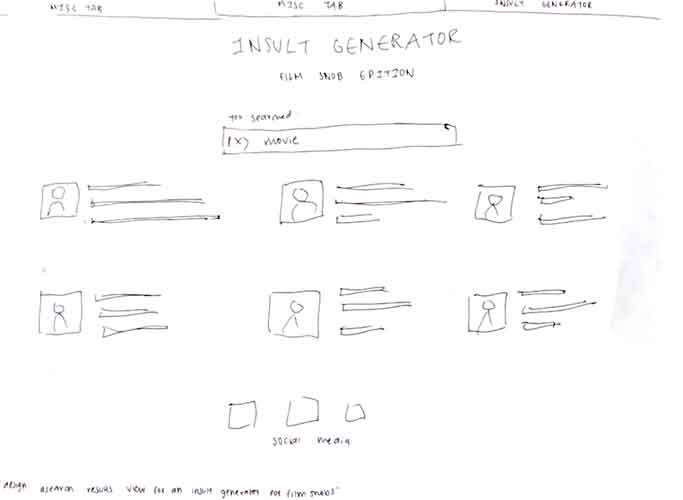 MISC TAB MISC TAB INSULT GENERATOR
INSULT GENERATOR
FILM SNOB EDITION
You searched:
(X) movie
social media
"design a search results view for an insult generator for film snobs"